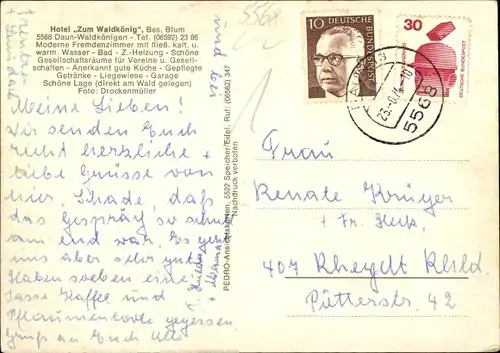 Hotel „Zum Waldkönig", Bes. Blum
5568 Daun-Waldkönigen - Tel. (06592) 23 86
Moderne Fremdenzimmer mit fließ. kalt. u.
warm. Wasser - Bad - Z.-Heizung - Schöne
Gesellschaftsräume für Vereine u. Gesell-
schaften - Anerkannt gute Küche - Gepflegte
Getränke - Liegewiese - Garage
Schöne Lage (direkt am Wald gelegen)
Foto: Drockenmüller
Meine Lieben!
Wir senden Euch
recht herzliche +
liebe Grüsse von
hier. Schade, daß
das Gespräch so schnell
am end war. Es geht
uns aber sehr gut.
Haben soeben eine
Tasse Kaffee und
Pflaumentorte gegessen.
Gruß an Euch Alle
und bei
PEDRO-Ansichtskarten, 5522 Speicher/Eifel, Ruf: (06562) 347
Nachdruck verboten
5568
10 DEUTSCHE BUNDESPOST
30
DEUTSCHE BUNDESPOST
5568
Frau
Renate Krüger
+ Fr. Heck,
407 Rheydt Rhld.
Pütterstr. 42